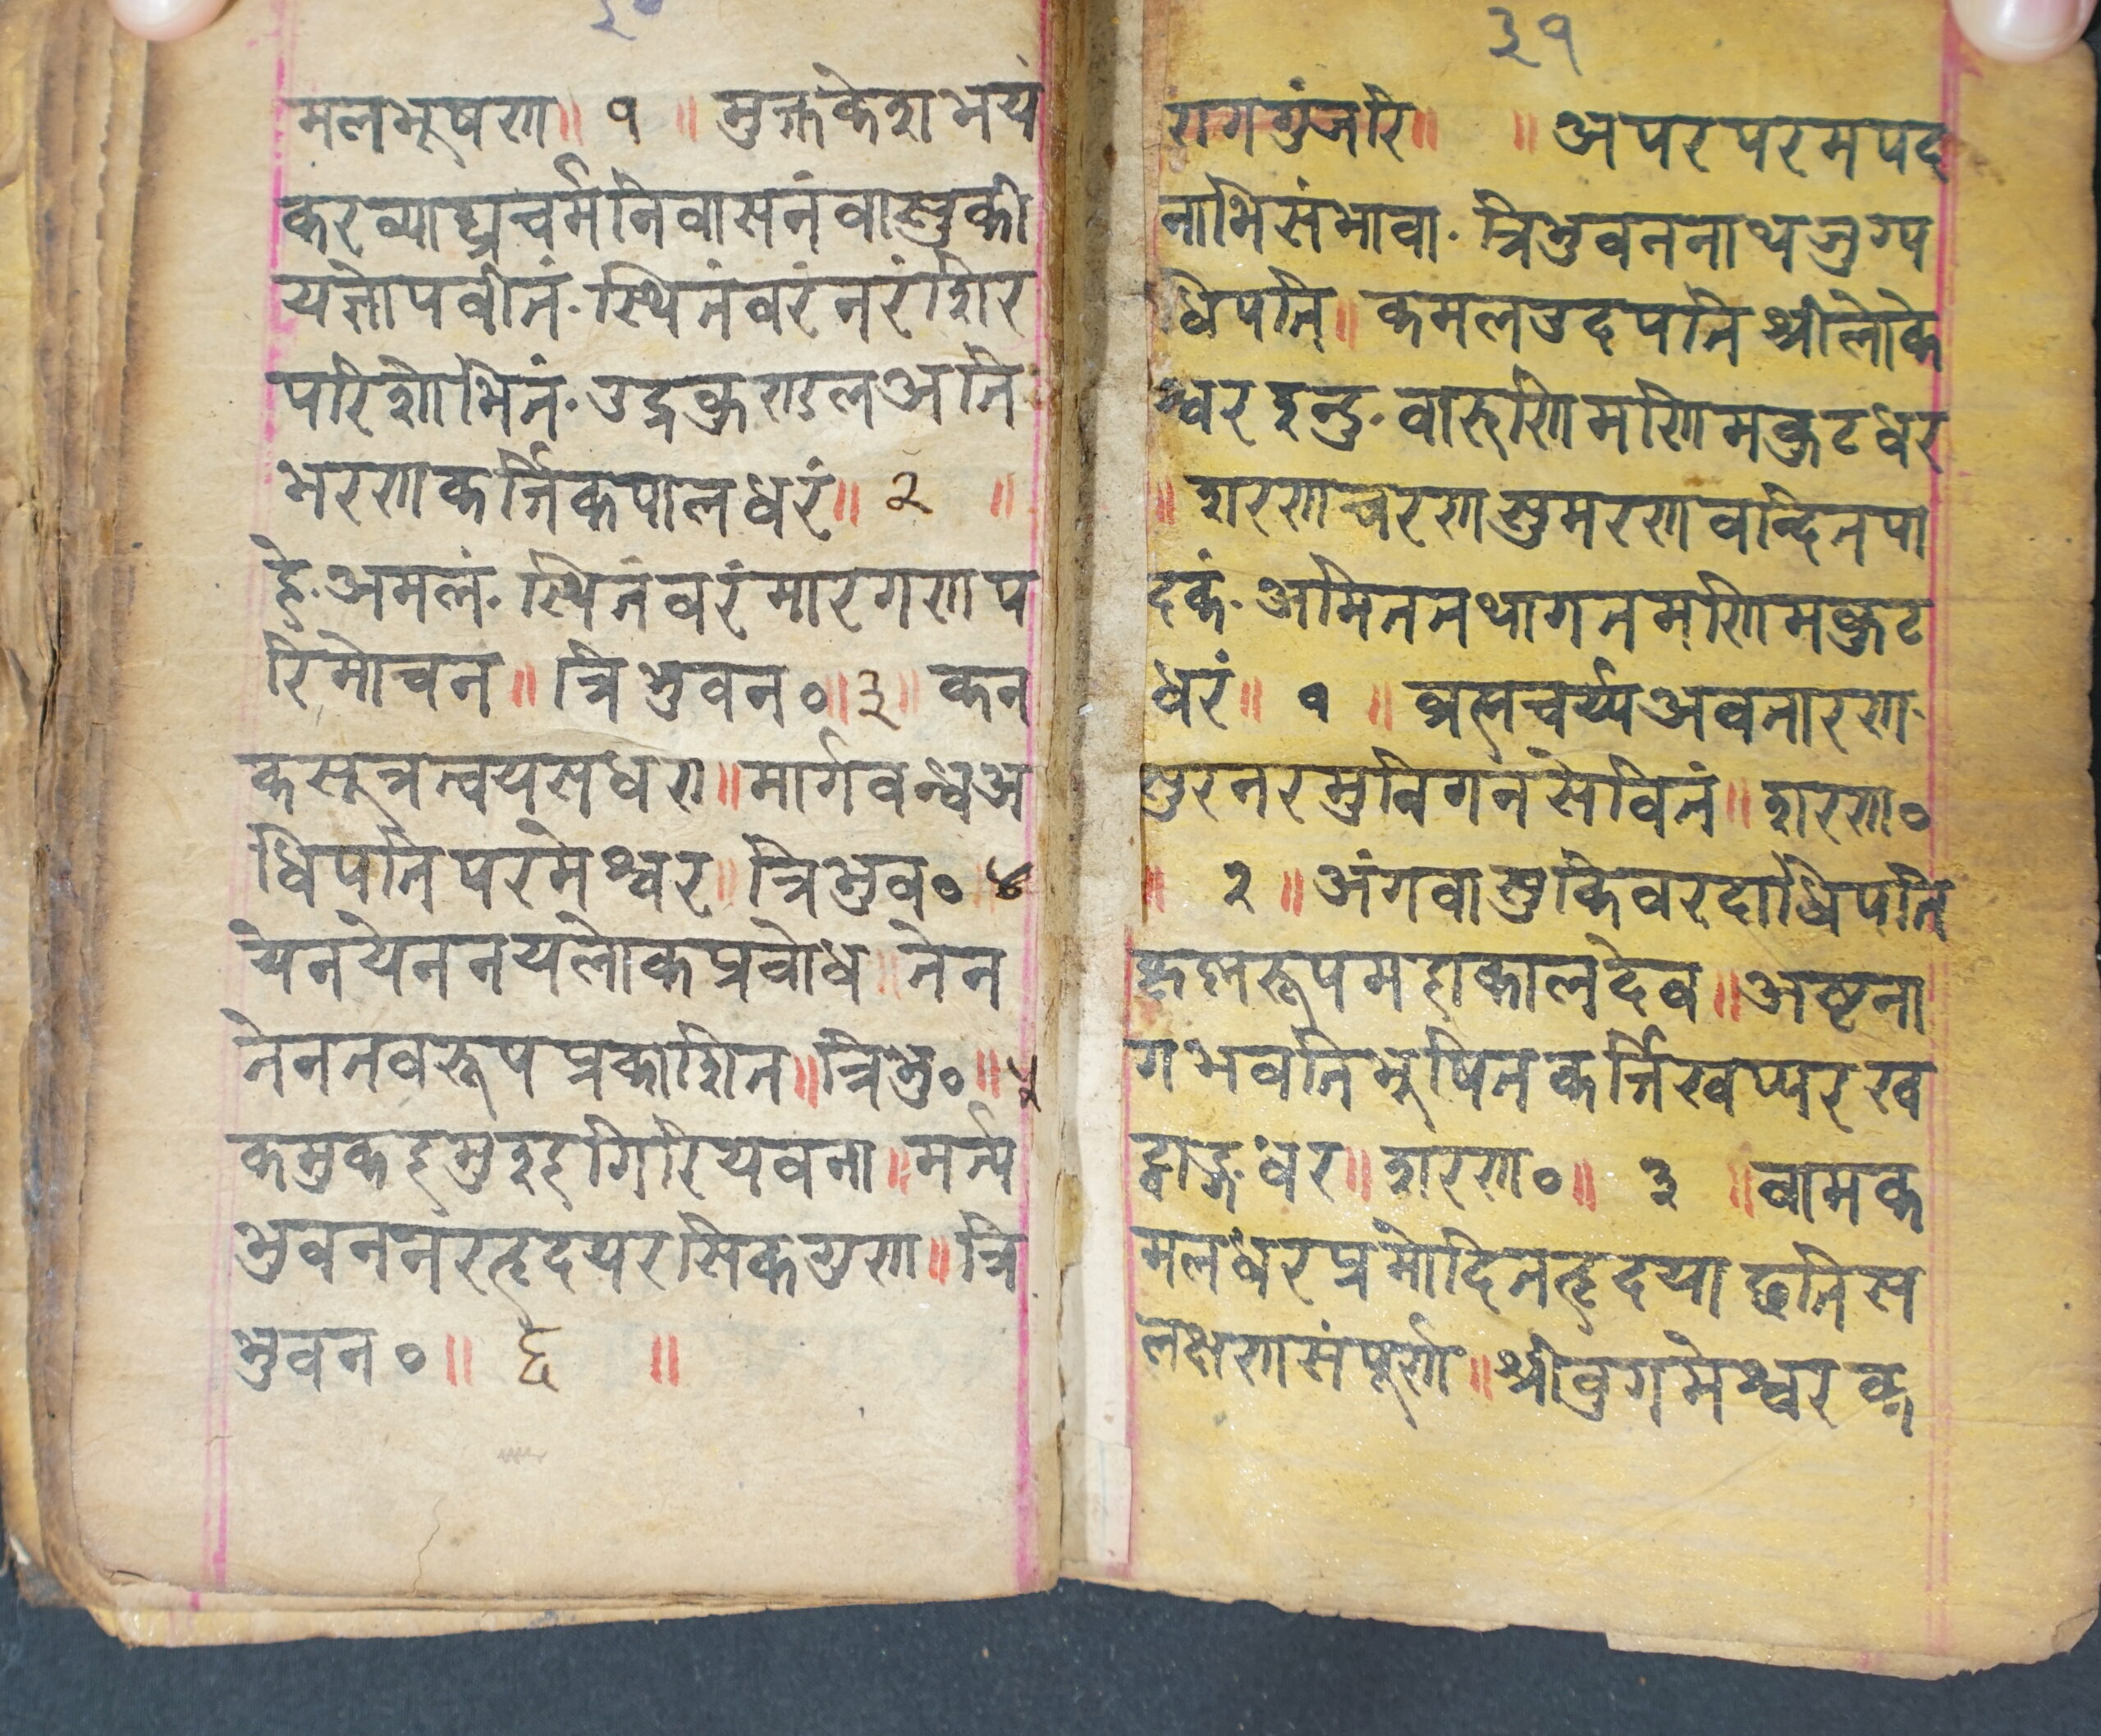 ३०
मलभूषण॥ १ ॥ मुक्तकेशभयं
करव्याघ्रचर्मनिवासनंवाशुकी
यज्ञोपवीतं·स्थितंवरंनरंशिर
परिशोभितं·उद्रकुण्डलअति
भरणकर्त्तिकपालधरं॥ २ ॥
हे·अमलं·स्थितंवरंमारगणप
रिमोचन॥त्रिभुवन०॥३॥कन
कसूत्रत्वयसधरा॥मार्गवन्धअ
धिपतिपरमेश्वर॥त्रिभुव०॥४
येनयेननयलोकप्रवोध॥तेन
तेननवरूपप्रकाशित॥त्रिभु०॥५
कमुकहमुडुहगिरियवना॥मर्त्य
भुवननरहृदयरसिकगुण॥त्रि
भुवन०॥ ६ ॥
३१
रागगुंजरि॥ ॥अपरपरमपद
नाभिसंभावा·त्रिभुवननाथजुग्प
धिपति॥कमलउदपतिश्रीलोके
श्वरइन्दु·वारुणिमणिमकुटधर
॥शरणचरणशुमरणवन्दितपा
दकं·अमिततथागतमणिमकुट
धरं॥ १ ॥ब्रह्मचर्य्यअवतारण·
शुरनरमुनिगनंसेवितं॥शरण०
॥ २ ॥अंगवाशुकिवरदाधिपति
कृष्णरूपमहाकालदेव॥अष्टना
गभवतिभूषितकर्त्तिखप्परख
ट्वाङ्गधर॥शरण०॥ ३ ॥वामक
मलधरप्रमोदितहृदयाछतिस
लक्षणसंपूर्ण॥श्रीवुगमेश्वरक